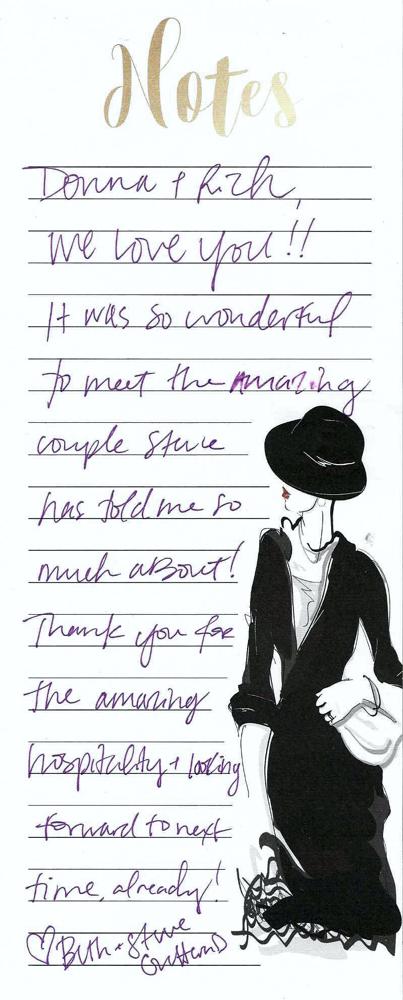 Notes
Donna + Rich,
We love you!!
It was so wonderful
to meet the amazing
couple Steve
has told me so
much about!
Thank you for
the amazing
hospitality + looking
forward to next
time, already!
♡ Beth + Steve